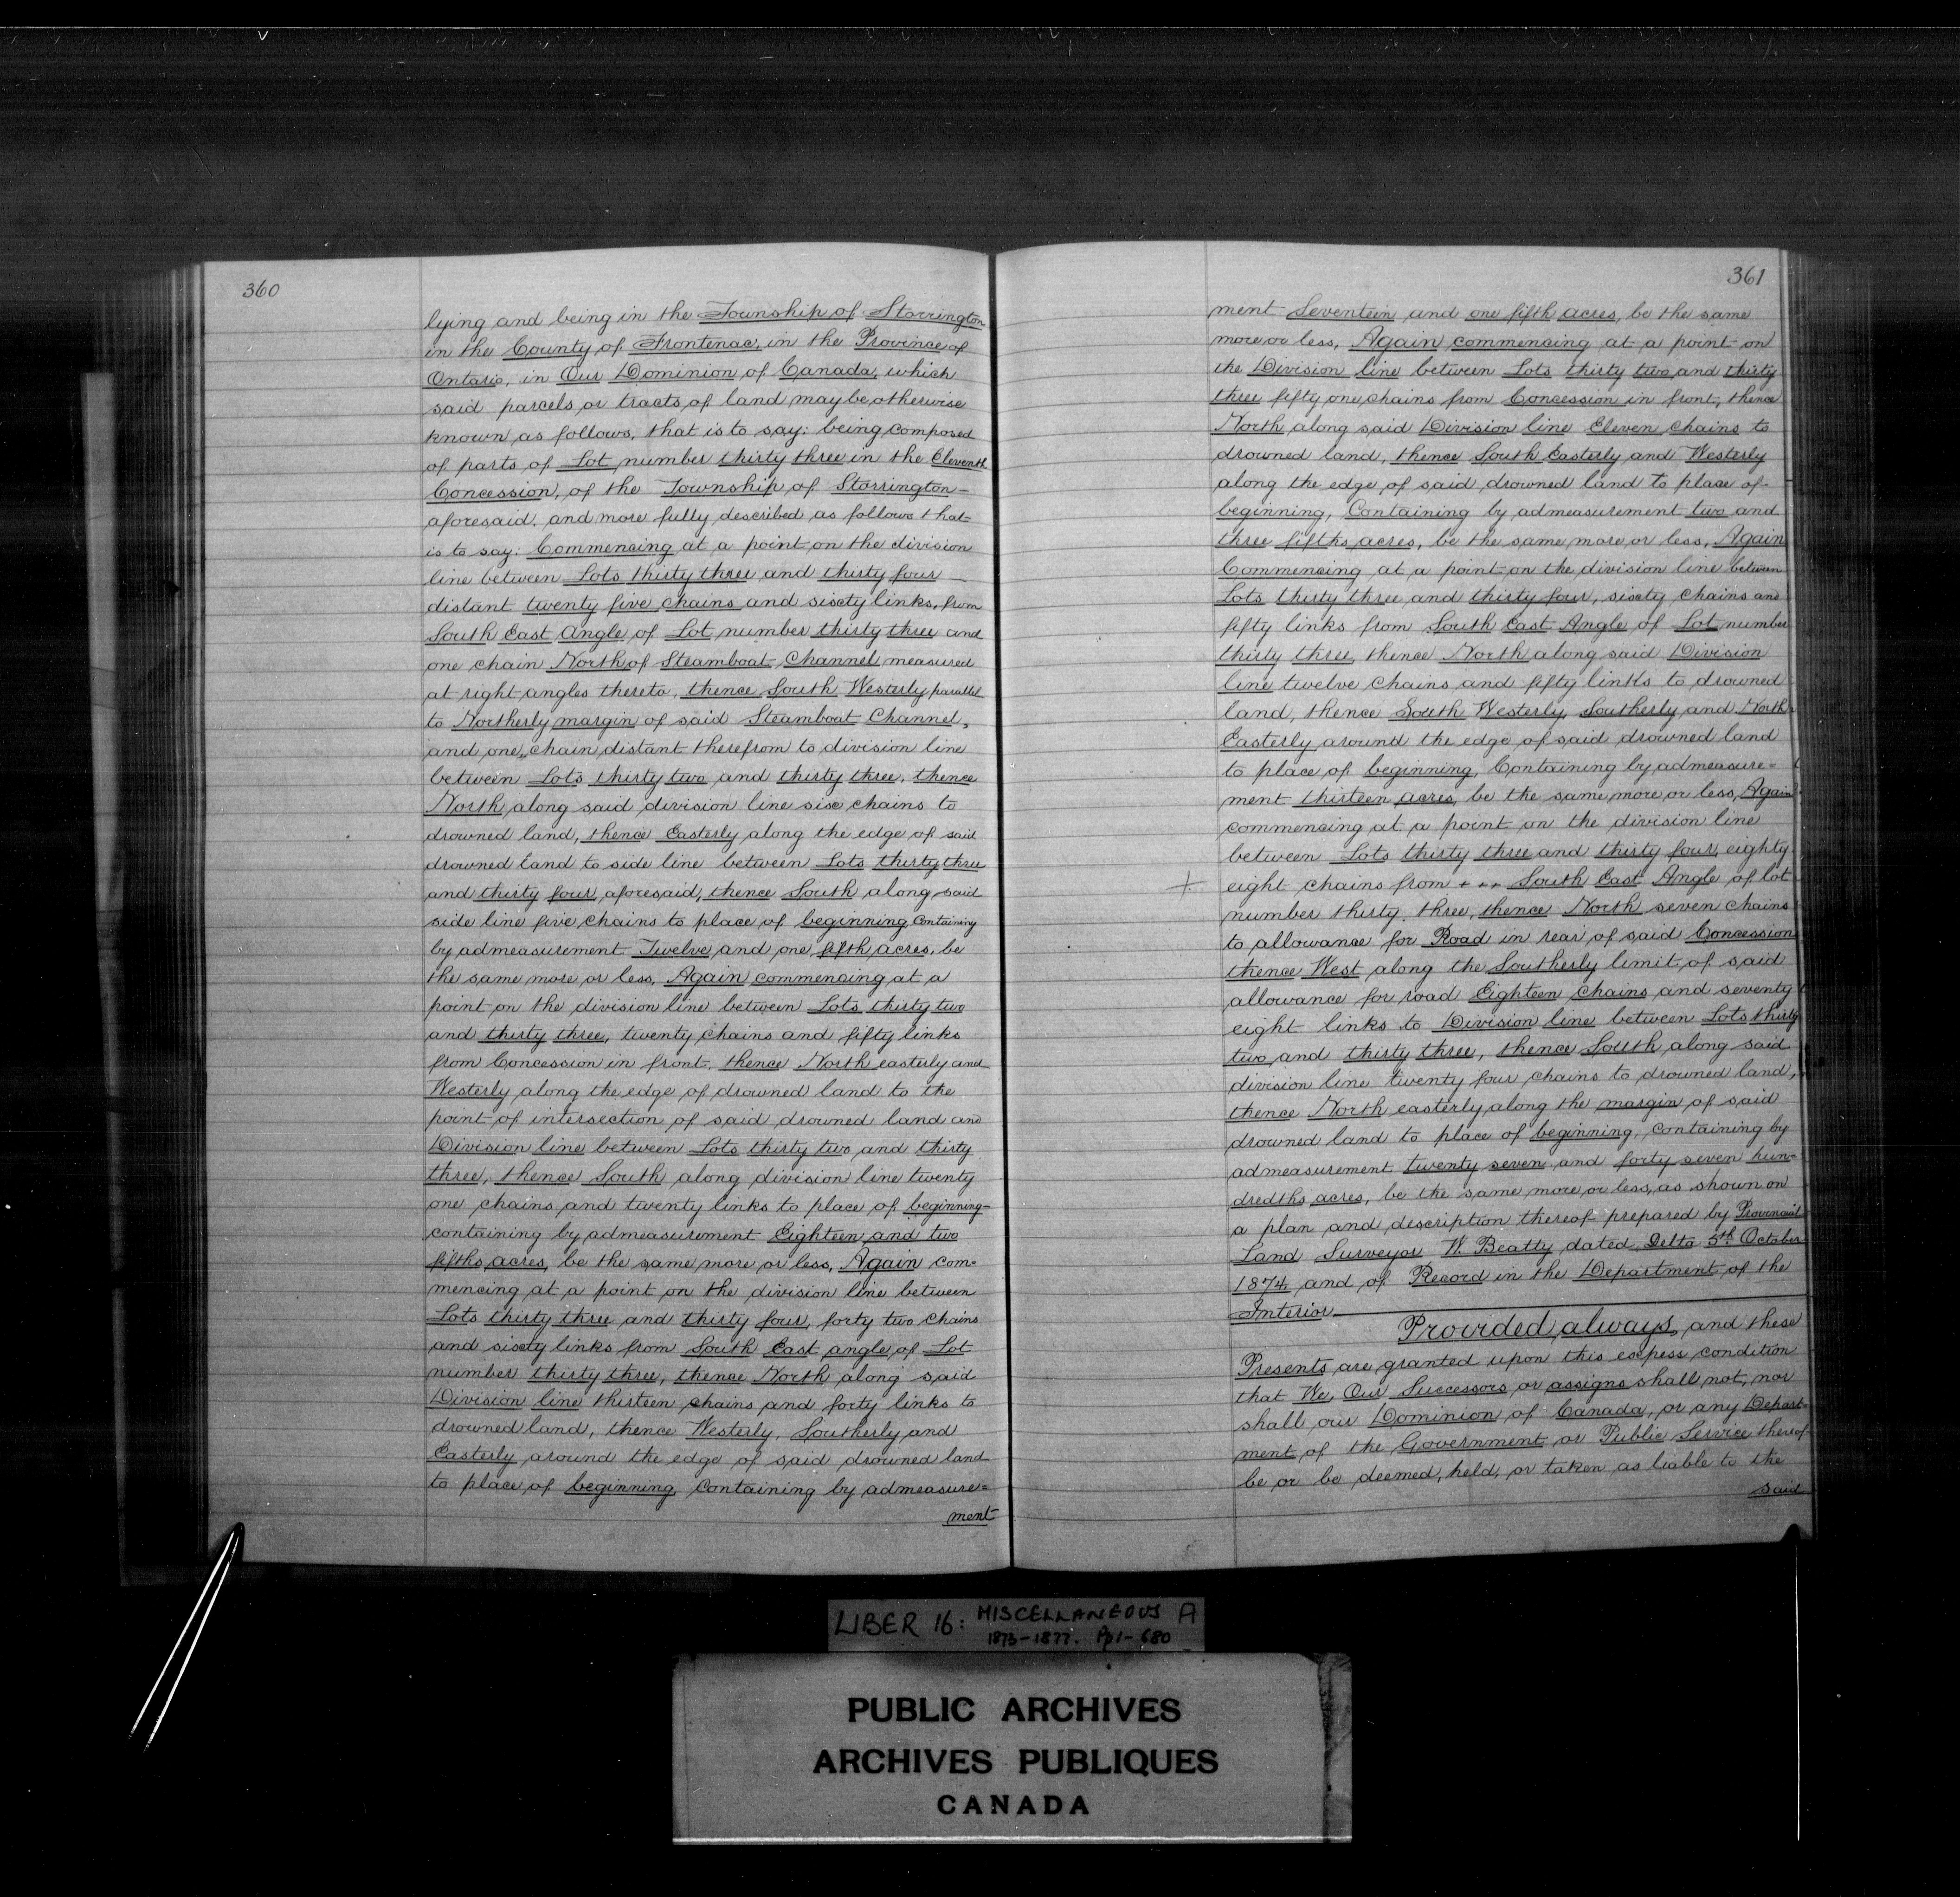 360
lying and being in the Township of Storrington
in the County of Frontenac, in the Province of
Ontario, in Our Dominion of Canada, which
said parcels or tracts of land may be otherwise
known as follows, that is to say: being composed
of parts of Lot number thirty three in the Eleventh
Concession, of the Township of Storrington -
aforesaid, and more fully described as follows that
is to say: Commencing at a point on the division
line between Lots thirty three and thirty four
distant twenty five chains and sixty links, from
South East Angle of Lot number thirty three and
one chain North of Steamboat Channel measured
at right angles thereto, thence South Westerly parallel
to Northerly margin of said Steamboat Channel,
and one chain distant therefrom to division line
between Lots thirty two and thirty three, thence
North along said division line six chains to
drowned land, thence Easterly along the edge of said
drowned land to side line between Lots thirty three
and thirty four, aforesaid, thence South along said
side line five chains to place of beginning containing
by admeasurement Twelve and one fifth acres, be
the same more or less, Again commencing at a
point on the division line between Lots thirty two
and thirty three, twenty chains and fifty links
from Concession in front, thence North easterly and
Westerly along the edge of drowned land to the
point of intersection of said drowned land and
Division line between Lots thirty two and thirty
three, thence South along division line twenty
one chains and twenty links to place of beginning-
containing by admeasurement Eighteen and two
fifths acres, be the same more or less, Again com=
mencing at a point on the division line between
Lots thirty three and thirty four, forty two chains
and sixty links from South East angle of Lot
number thirty three, thence North along said
Division line thirteen chains and forty links to
drowned land, thence Westerly, Southerly and
Easterly around the edge of said drowned land
to place of beginning, Containing by admeasure=
ment
361
ment Seventeen and one fifth acres, be the same
more or less, Again commencing at a point on
the Division line between Lots thirty two and thirty
three fifty one chains from Concession in front, thence
North along said Division line Eleven chains to
drowned land, thence South Easterly and Westerly
along the edge of said drowned land to place of
beginning, Containing by admeasurement two and
three fifths acres, be the same more or less, Again
Commencing at a point on the division line between
Lots thirty three and thirty four, sixty chains and
fifty links from South East Angle of Lot number
thirty three, thence North along said Division
line twelve chains and fifty links to drowned
land, thence South Westerly, Southerly and North
Easterly around the edge of said drowned land
to place of beginning, Containing by admeasure=
ment thirteen acres, be the same more or less, Again
commencing at a point on the division line
between Lots thirty three and thirty four, eighty
+ eight chains from + + + South East Angle of lot
number thirty three, thence North seven chains
to allowance for Road in rear of said Concession
thence West along the Southerly limit of said
allowance for road Eighteen chains and seventy
eight links to Division line between Lots thirty
two and thirty three, thence South along said
division line twenty four chains to drowned land,
thence North easterly along the margin of said
drowned land to place of beginning, containing by
admeasurement twenty seven and forty seven hun=
dredths acres, be the same more or less, as shown on
a plan and description thereof prepared by Provincial
Land Surveyor W. Beatty dated Delta 5th October
1874 and of Record in the Department of the
Interior.
Provided always, and these
Presents are granted upon this express condition
that We, Our Successors, or assigns shall not, nor
shall our Dominion of Canada, or any Depart=
ment of the Government or Public Service thereof
be or be deemed, held, or taken as liable to the
said
LIBER 16: MISCELLANEOUS A
1873-1877. Pp 1-680
PUBLIC ARCHIVES
ARCHIVES PUBLIQUES
CANADA